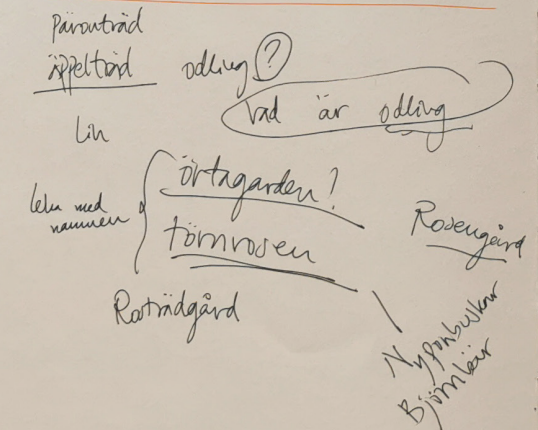 Päronträd
äppelträd
odling ?
Vad är odling
Lin
örtagarden?
leka med
namnen
törnrosen
Rosengård
Rosträdgård
Nyponbuskar
Björnbär